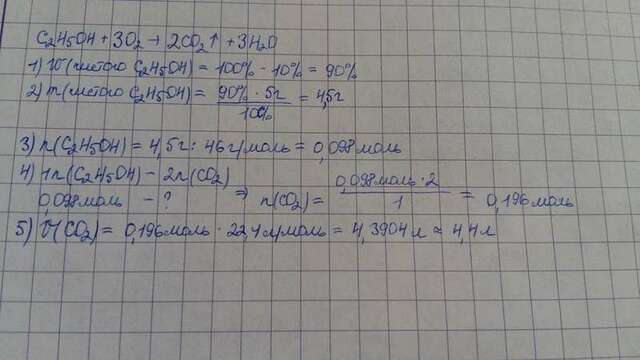 C2H5OH + 3O2 → 2CO2↑ + 3H2O
1) W(чистого C2H5OH) = 100% - 10% = 90%
2) m(чистого C2H5OH) = 90% · 5г / 100% = 4,5г
3) n(C2H5OH) = 4,5г : 46г/моль = 0,098моль
4) 1n(C2H5OH) - 2n(CO2)
0,098моль - ? ⇒ n(CO2) = 0,098моль · 2 / 1 = 0,196моль
5) V(CO2) = 0,196моль · 22,4л/моль = 4,3904л ≈ 4,4л